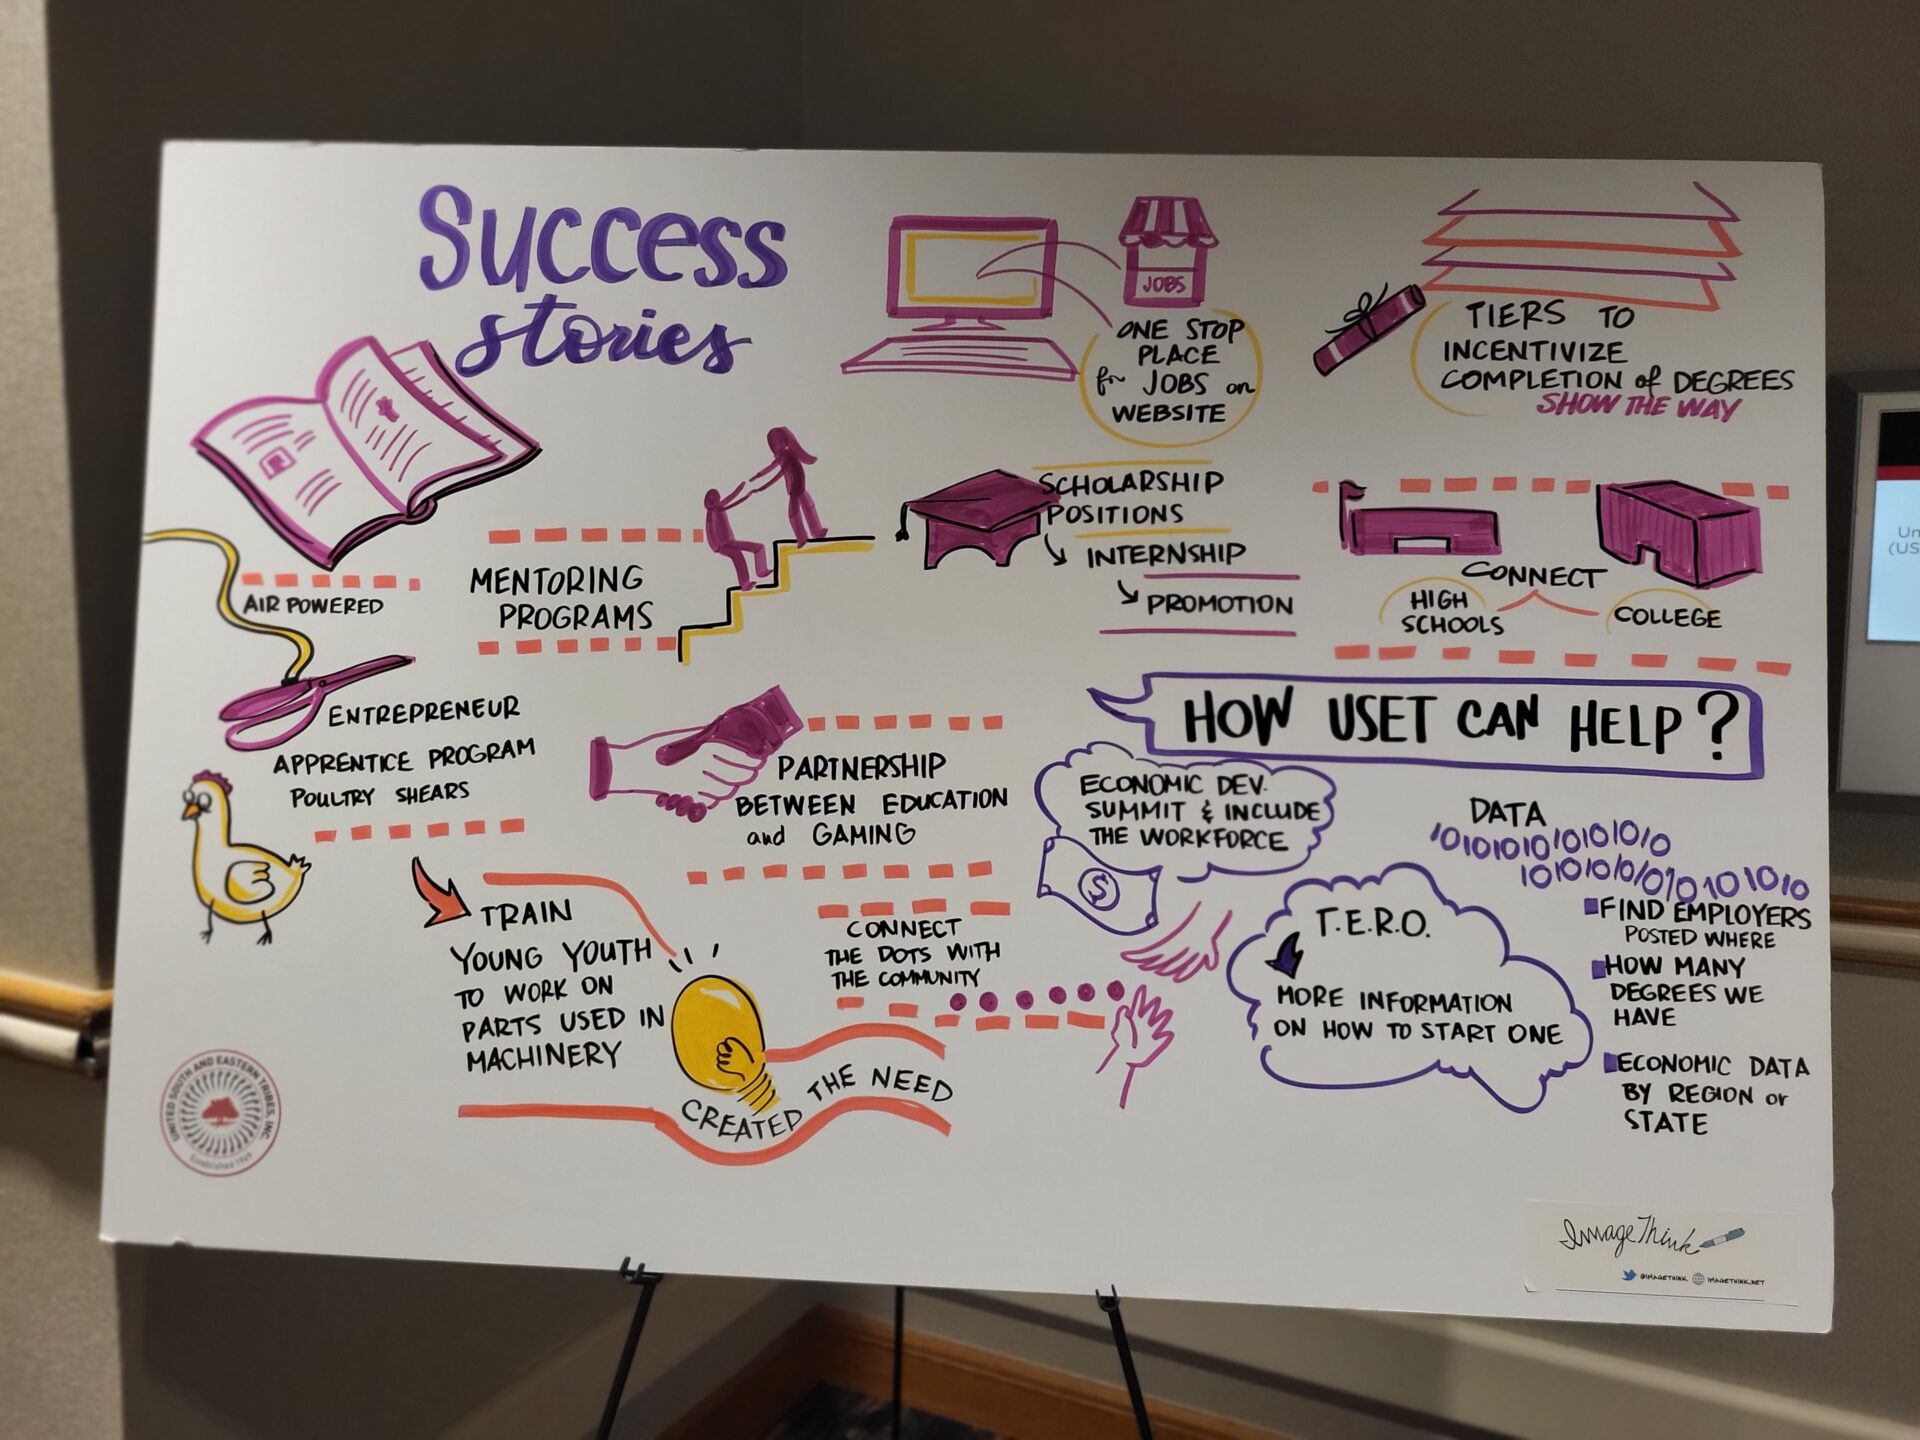 Success
stories
JOBS
ONE STOP
PLACE
for JOBS on
WEBSITE
TIERS TO
INCENTIVIZE
COMPLETION of DEGREES
SHOW THE WAY
AIR POWERED
ENTREPRENEUR
APPRENTICE PROGRAM
POULTRY SHEARS
MENTORING
PROGRAMS
SCHOLARSHIP
POSITIONS
INTERNSHIP
PROMOTION
CONNECT
HIGH
SCHOOLS
COLLEGE
PARTNERSHIP
BETWEEN EDUCATION
and GAMING
TRAIN
YOUNG YOUTH
TO WORK ON
PARTS USED IN
MACHINERY
CREATED THE NEED
CONNECT
THE DOTS WITH
THE COMMUNITY
HOW USET CAN HELP?
ECONOMIC DEV.
SUMMIT & INCLUDE
THE WORKFORCE
$
T.E.R.O.
MORE INFORMATION
ON HOW TO START ONE
DATA
10101010101010
10101010101010101010
FIND EMPLOYERS
POSTED WHERE
HOW MANY
DEGREES WE
HAVE
ECONOMIC DATA
BY REGION or
STATE
UNITED SOUTH AND EASTERN TRIBES, INC.
Established 1969
ImageThink
@IMAGETHINK IMAGETHINK.NET
Un
(US